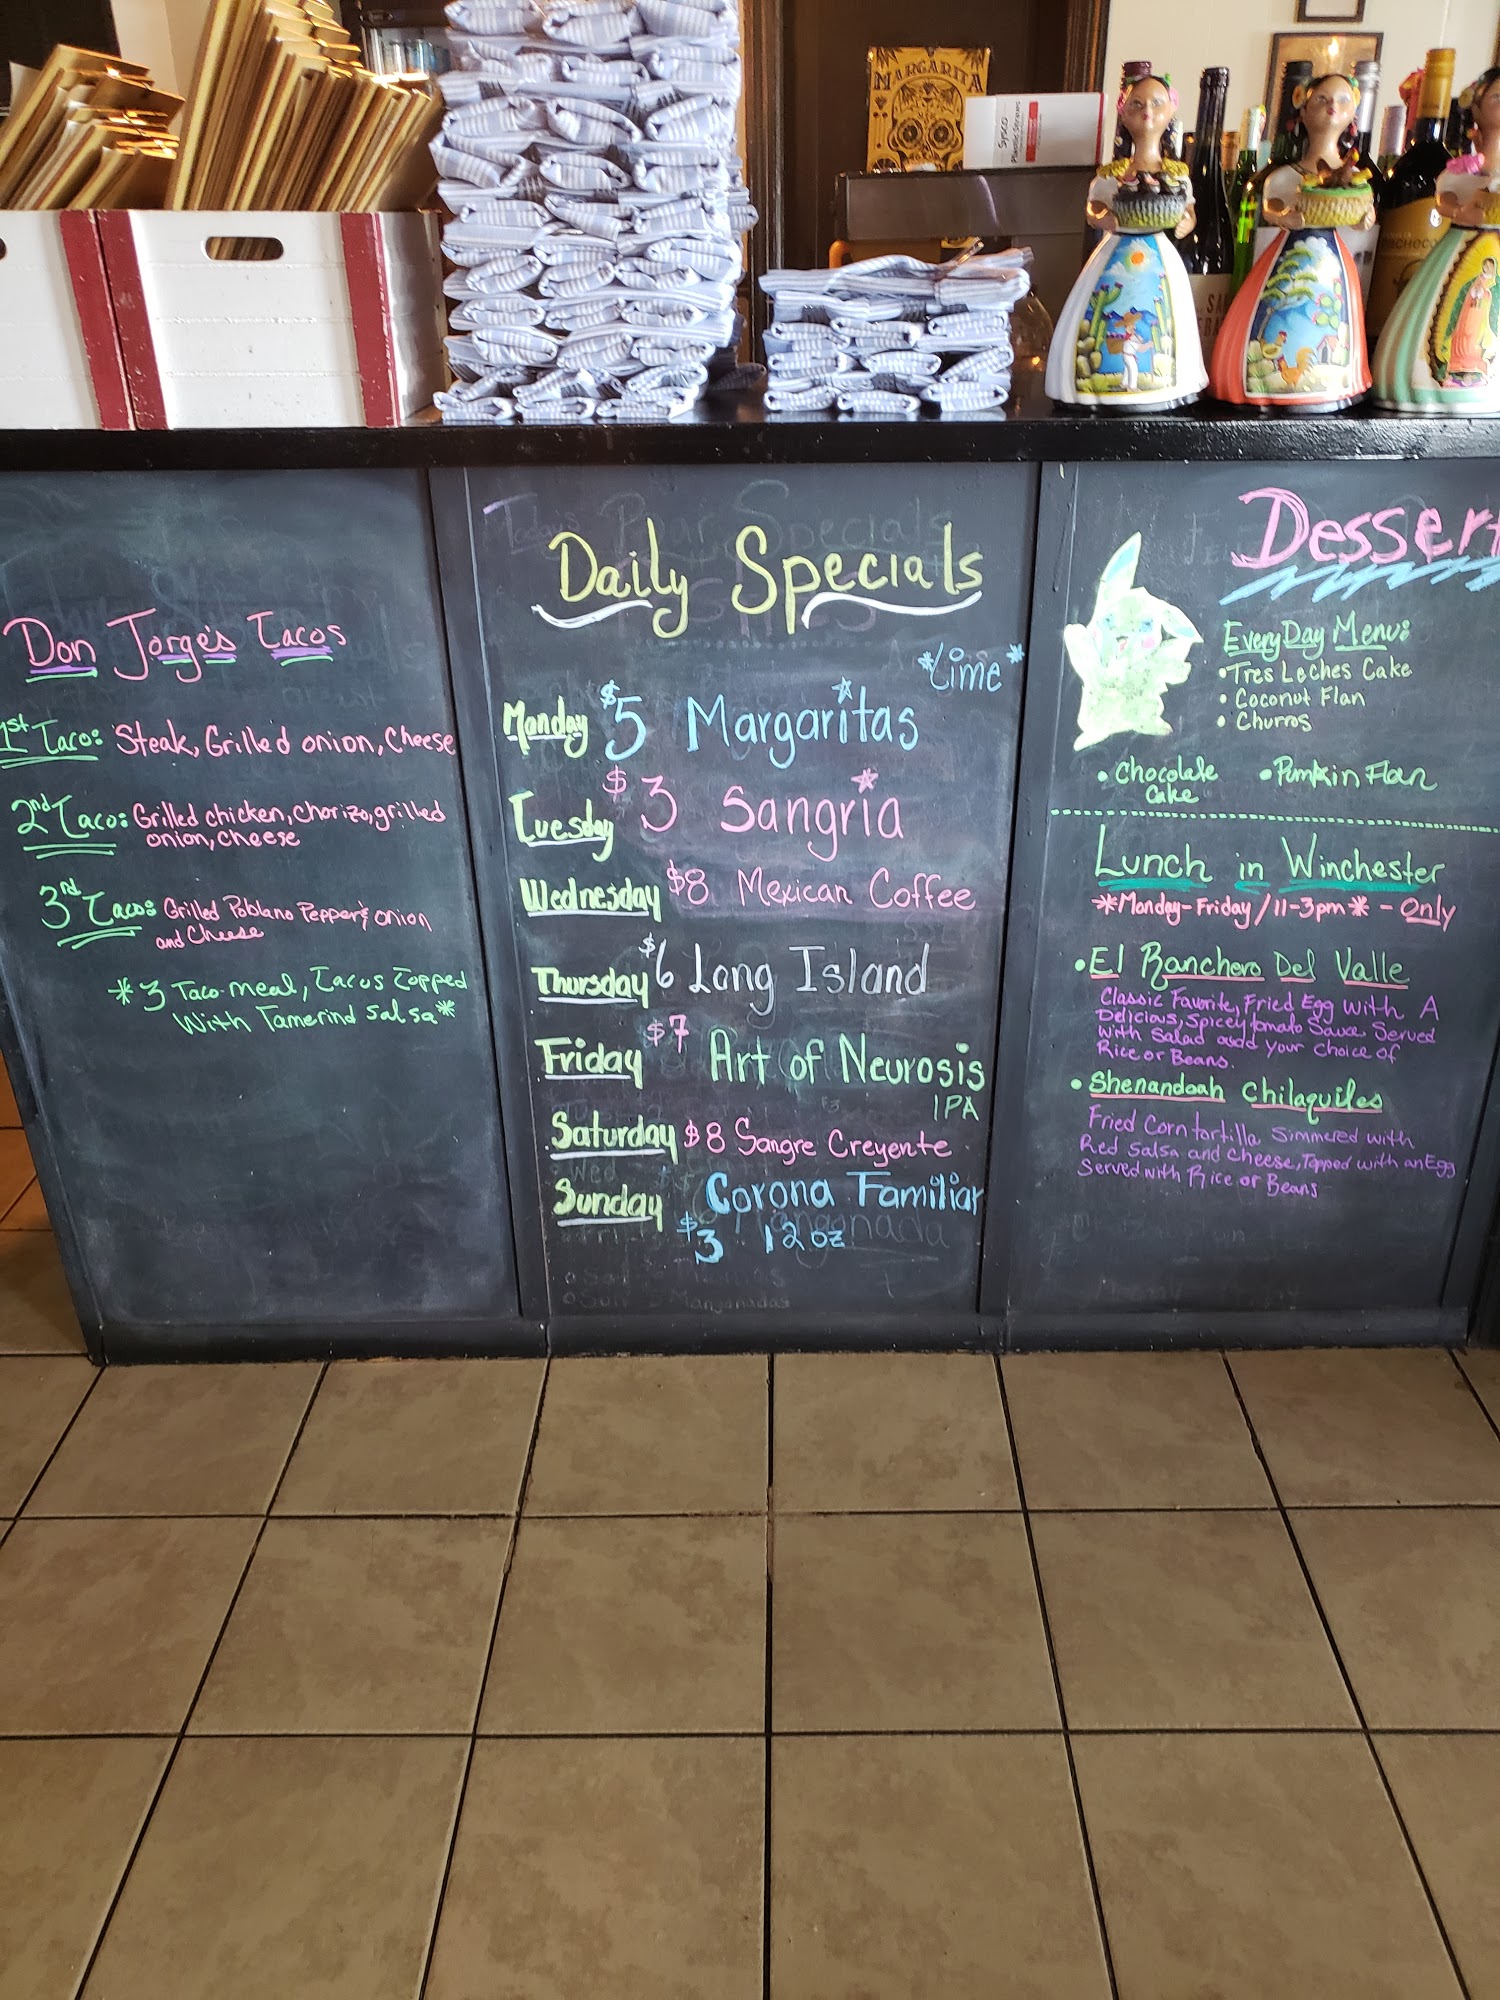 MARGARITA
Sysco
Plastic Straws
PACHECO
Don Jorge's Tacos
1st Taco: Steak, Grilled onion, Cheese
2nd Taco: Grilled chicken, Chorizo, grilled
onion, cheese
3rd Taco: Grilled Poblano Pepper & onion
and Cheese
*3 Taco meal, Tacos Topped
With Tamerind Salsa*
Daily Specials
*Lime*
Monday $5 Margaritas
Tuesday $3 Sangria
Wednesday $8 Mexican Coffee
Thursday $6 Long Island
Friday $7 Art of Neurosis
IPA
Saturday $8 Sangre Creyente
Sunday Corona Familiar
$3 12oz
Dessert
EveryDay Menu:
•Tres Leches Cake
• Coconut Flan
• Churros
• Chocolate
Cake
•Pumkin Flan
Lunch in Winchester
*Monday-Friday/11-3pm* - Only
•El Ranchero Del Valle
Classic Favorite, Fried Egg with A
Delicious, Spicey tomato Sauce Served
with Salad and your choice of
Rice or Beans.
• Shenandoah Chilaquiles
Fried Corn tortilla simmered with
Red Salsa and Cheese, Topped with an Egg
Served with Rice or Beans